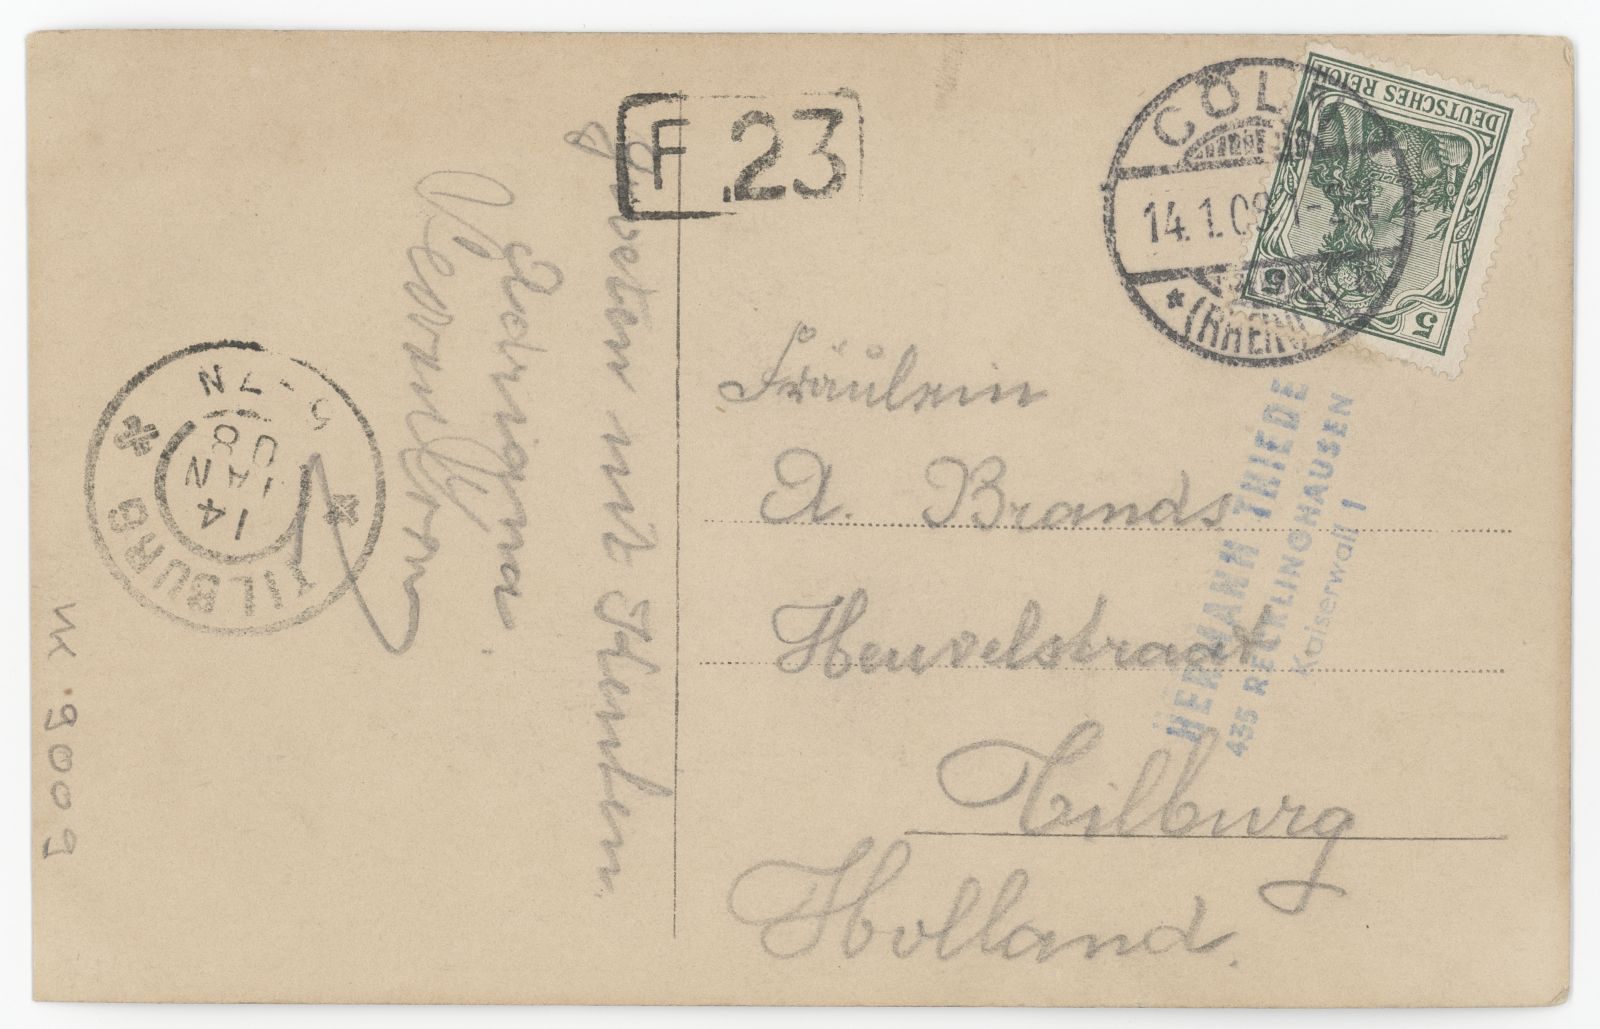 F.23
CÖLN
14.1.08
* (RHEIN)
DEUTSCHES REICH
5 5
Fräulein
A. Brands
Heuvelstraat
Tilburg
Holland.
HERMANN THIEDE
435 RECKLINGHAUSEN
Kaiserwall 1
TILBURG
14
JAN
08
mit
VK 9009